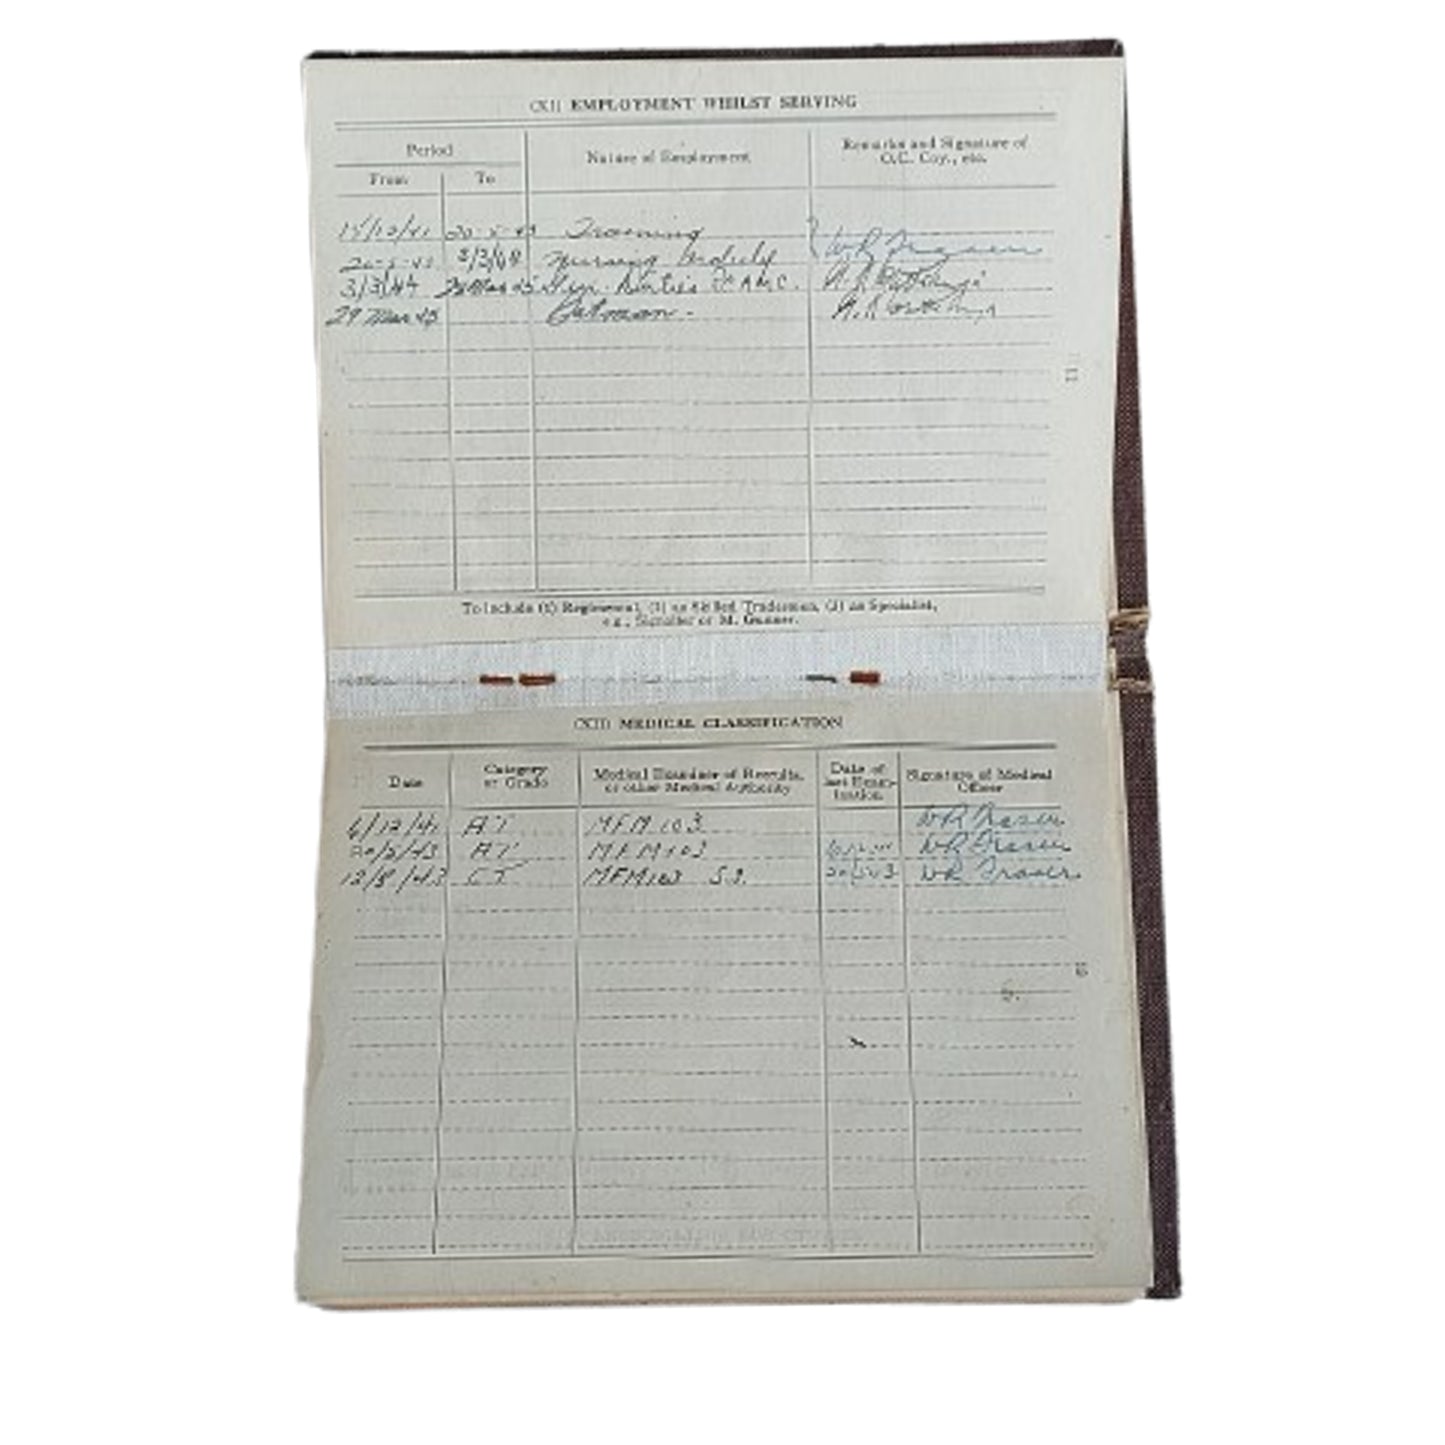 (XI) EMPLOYMENT WHILST SERVING
Period
Nature of Employment
Remarks and Signature of
O.C. Coy., etc.
From
To
15/12/41 20-5-43 Training
20-5-43 3/3/44 Nursing Orderly WR Fraser
3/3/44 28 Mar 45 Gen. Duties AMC.
29 Mar 45 Batman.
11
To Include (1) Regimental, (2) as Skilled Tradesman, (3) as Specialist,
e.g., Signaller or M. Gunner.
(XII) MEDICAL CLASSIFICATION
Date
Category
or Grade
Medical Examiner of Recruits,
or other Medical Authority
Date of
last Exam-
ination
Signature of Medical
Officer
6/12/41 A1 MFM 103 WR Fraser
20/5/43 A1 MFM103 WR Fraser
12/8/43 MFM103 20/5/43 WR Fraser